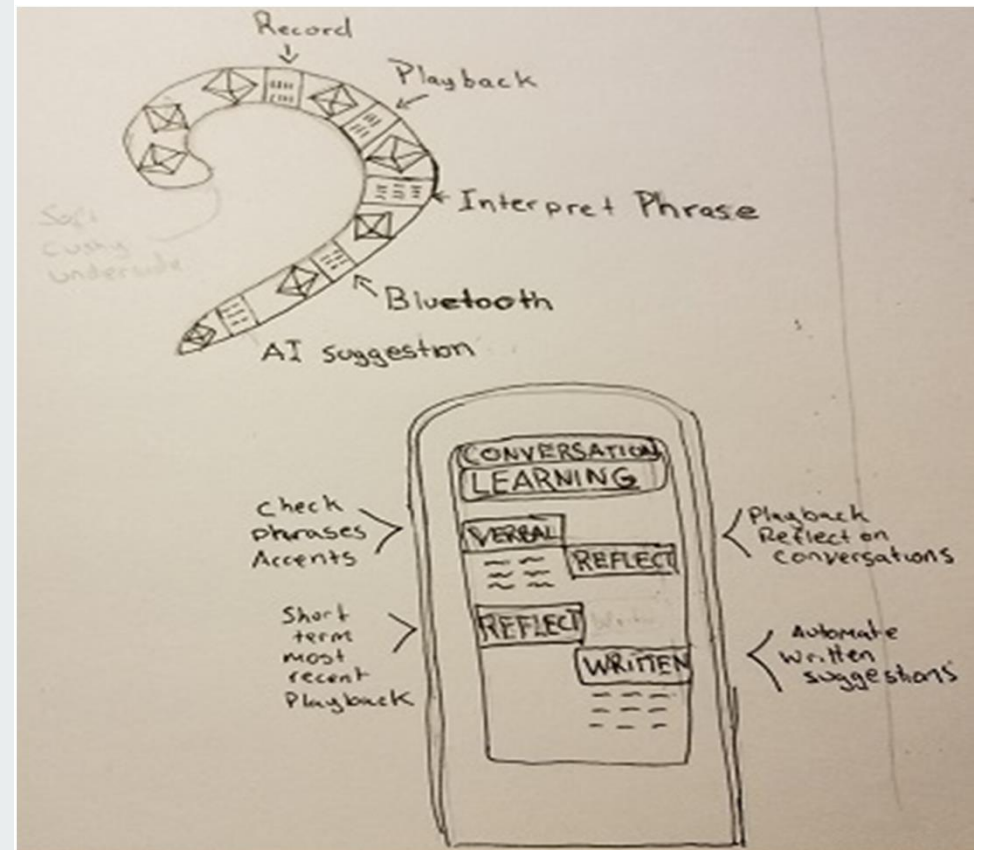 Record
Playback
Interpret Phrase
Bluetooth
AI suggestion
Soft
cushy
underside
CONVERSATION
LEARNING
check
phrases
Accents
VERBAL
REFLECT
Playback
Reflect on
conversations
Short
term
most
recent
Playback
REFLECT
WRITTEN
Automate
written
suggestions